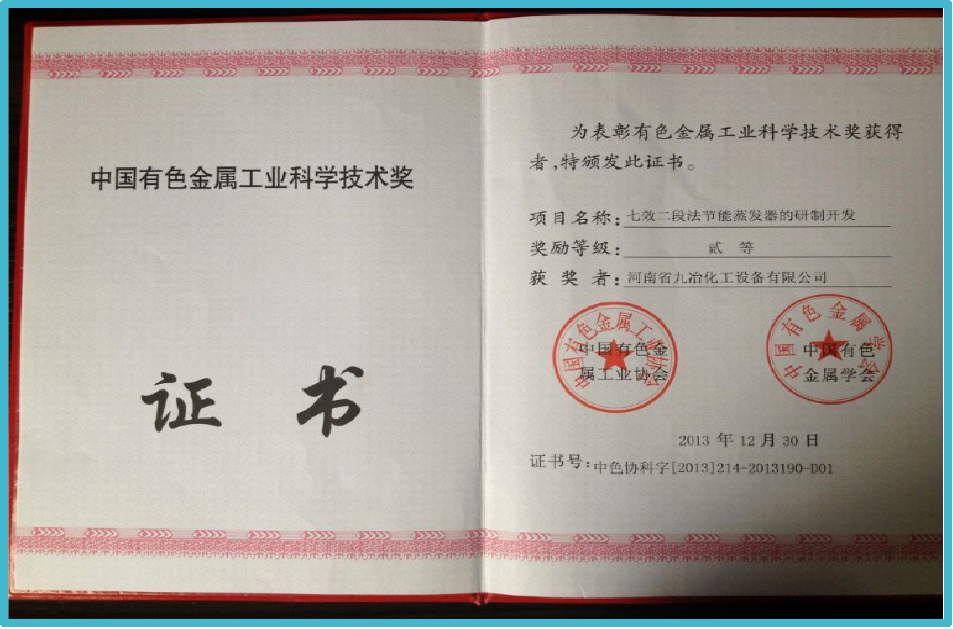 中国有色金属工业科学技术奖
证 书
为表彰有色金属工业科学技术奖获得
者,特颁发此证书。
项目名称: 七效二段法节能蒸发器的研制开发
奖励等级: 贰 等
获 奖 者: 河南省九冶化工设备有限公司
中国有色金属工业协会
中国有色金
属工业协会
中国有色金属学会
中国有色
金属学会
2013 年 12 月 30 日
证书号: 中色协科字[2013]214-2013190-D01